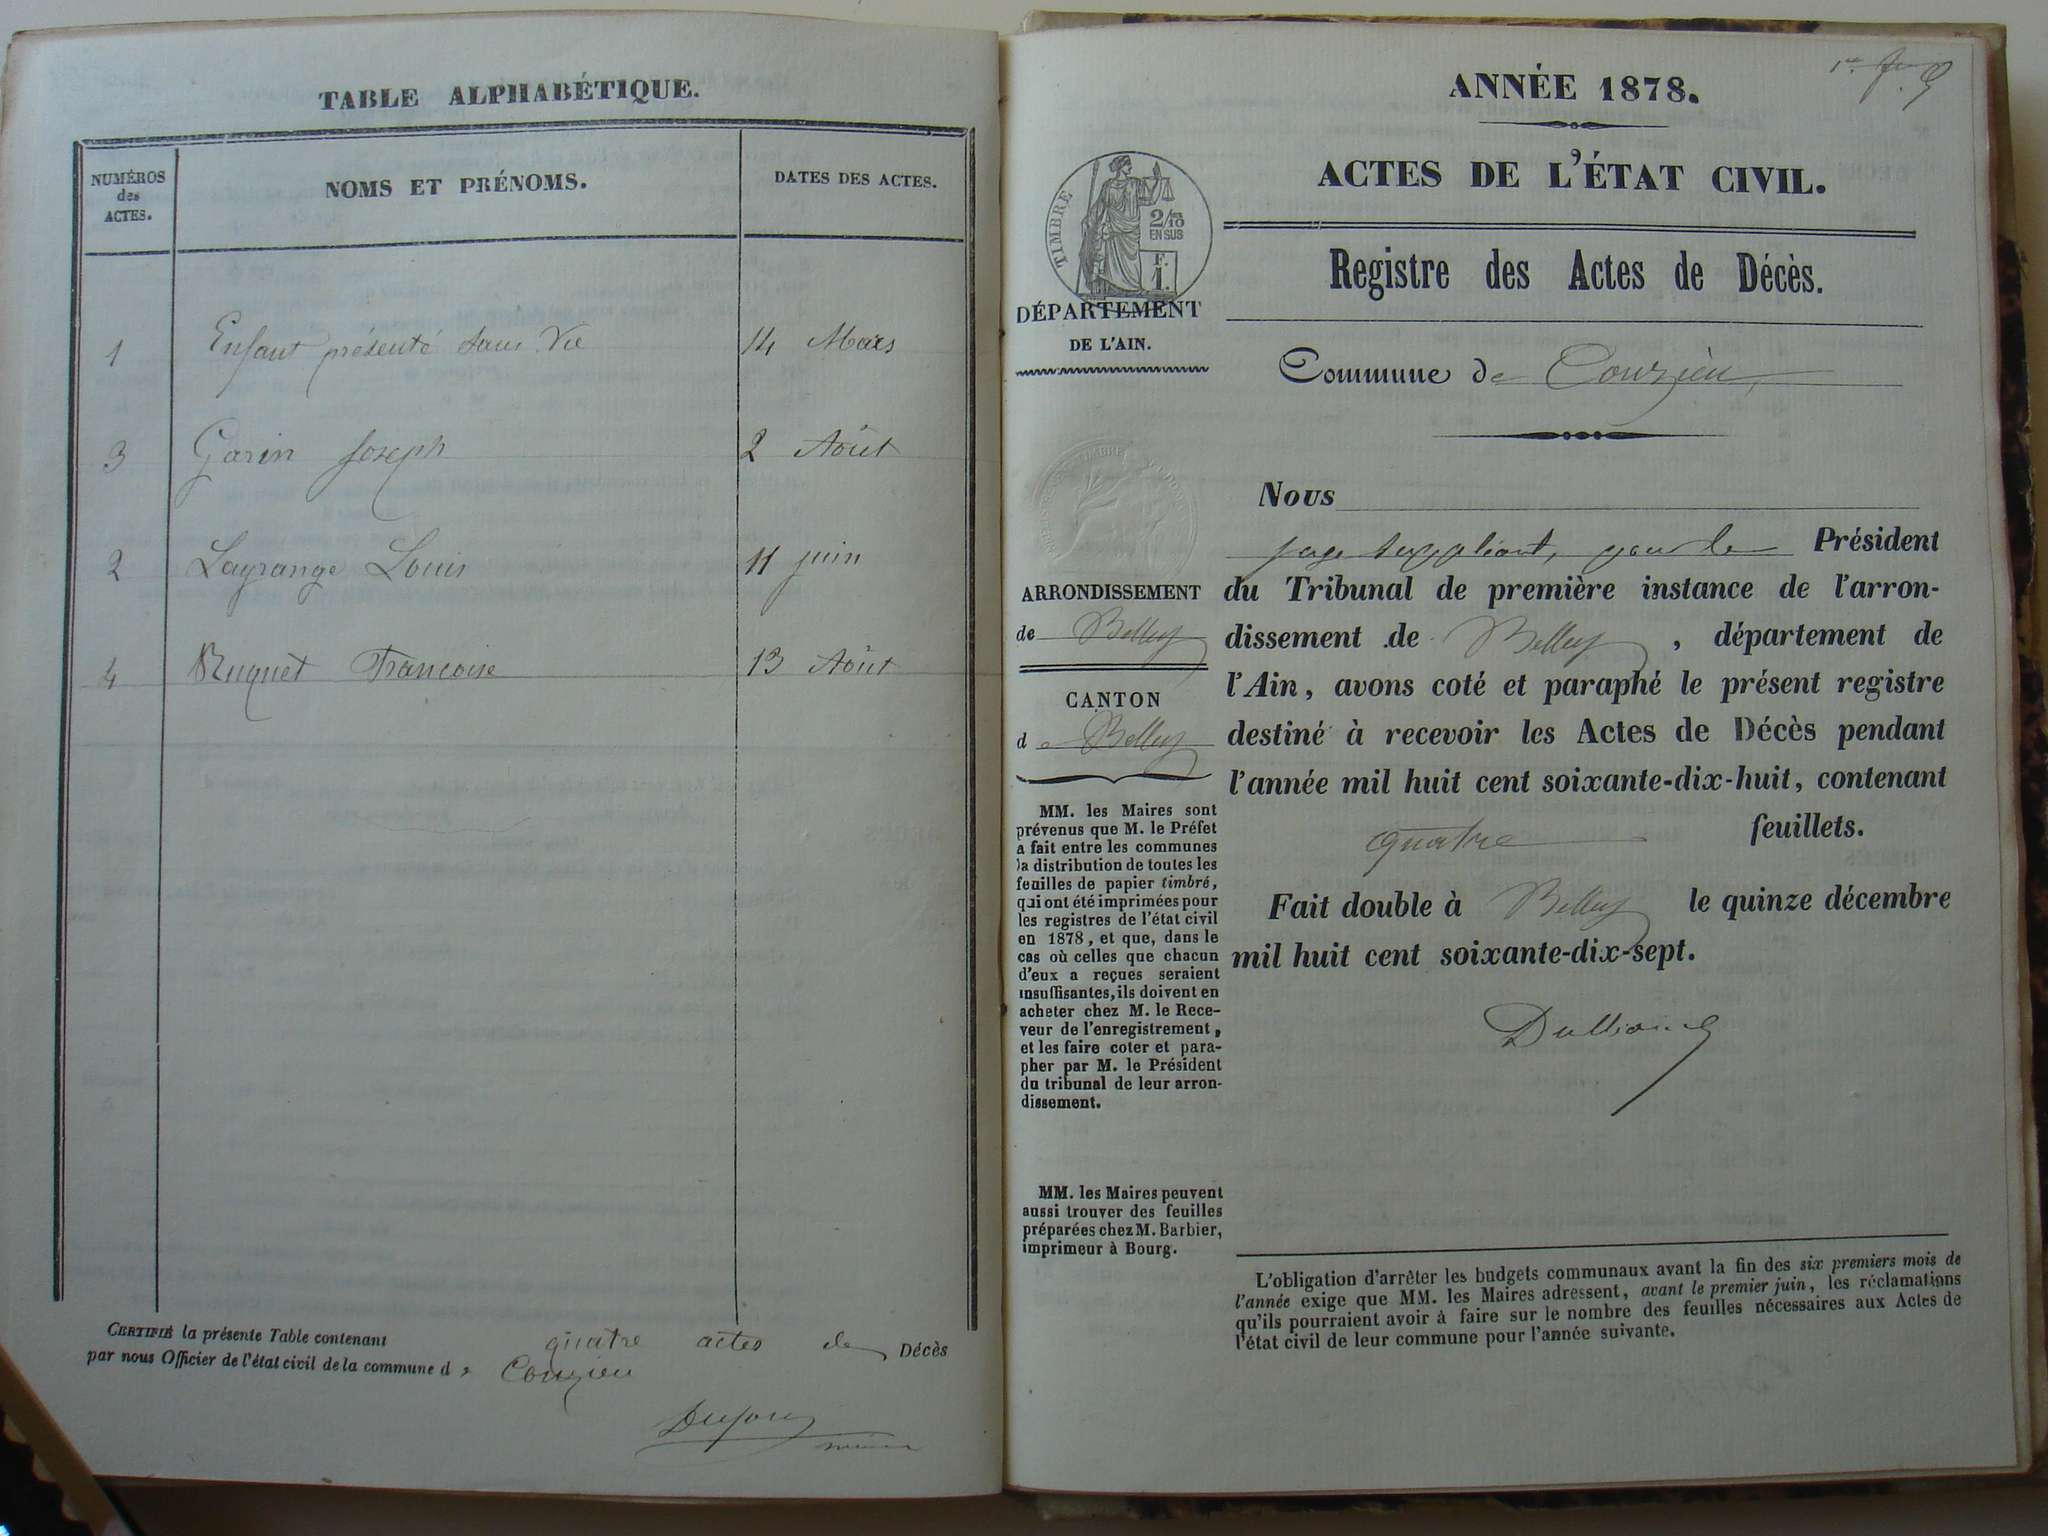 TABLE ALPHABÉTIQUE.
NUMÉROS
des
ACTES.
NOMS ET PRÉNOMS.
DATES DES ACTES.
1 Enfant présenté sans Vie 14 Mars
3 Garin Joseph 2 Août
2 Lagrange Louis 11 juin
4 Ruquet Francoise 13 Août
CERTIFIÉ la présente Table contenant quatre actes de Décès
par nous Officier de l'état civil de la commune de Conzieu
Dufour
maire
ANNÉE 1878.
ACTES DE L'ÉTAT CIVIL.
TIMBRE
2/10
EN SUS
F.
1.
Registre des Actes de Décès.
DÉPARTEMENT
DE L'AIN.
Commune de Conzieu
Nous
juge suppléant, pour le Président
du Tribunal de première instance de l'arron-
dissement de Belley, département de
l'Ain, avons coté et paraphé le présent registre
destiné à recevoir les Actes de Décès pendant
l'année mil huit cent soixante-dix-huit, contenant
quatre feuillets.
Fait double à Belley le quinze décembre
mil huit cent soixante-dix-sept.
ARRONDISSEMENT
de Belley
CANTON
de Belley
MM. les Maires sont
prévenus que M. le Préfet
a fait entre les communes
la distribution de toutes les
feuilles de papier timbré,
qui ont été imprimées pour
les registres de l'état civil
en 1878, et que, dans le
cas où celles que chacun
d'eux a reçues seraient
insuffisantes, ils doivent en
acheter chez M. le Rece-
veur de l'enregistrement,
et les faire coter et para-
pher par M. le Président
du tribunal de leur arron-
dissement.
MM. les Maires peuvent
aussi trouver des feuilles
préparées chez M. Barbier,
imprimeur à Bourg.
L'obligation d'arrêter les budgets communaux avant la fin des six premiers mois de
l'année exige que MM. les Maires adressent, avant le premier juin, les réclamations
qu'ils pourraient avoir à faire sur le nombre des feuilles nécessaires aux Actes de
l'état civil de leur commune pour l'année suivante.